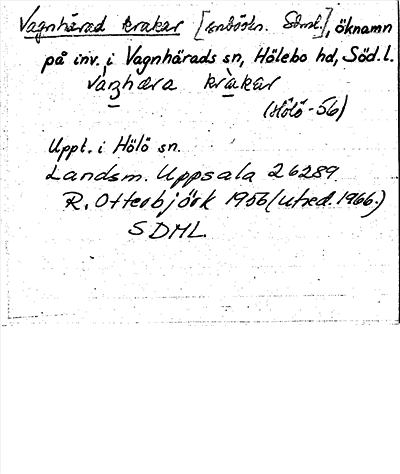 Vagnhärad krakar [inbößn. Södml.], öknamn
på inv. i Vagnhärads sn, Hölebo hd, Söd.l.
krakar
(Hölö-56)
Uppt. i Hölö sn.
Landsm. Uppsala 26289
R. Otterbjörk 1956 (utred. 1966.)
SDML.